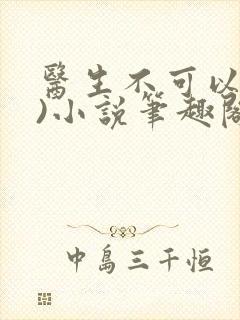 醫生不可以
)小說筆趣閣
中島三千恒